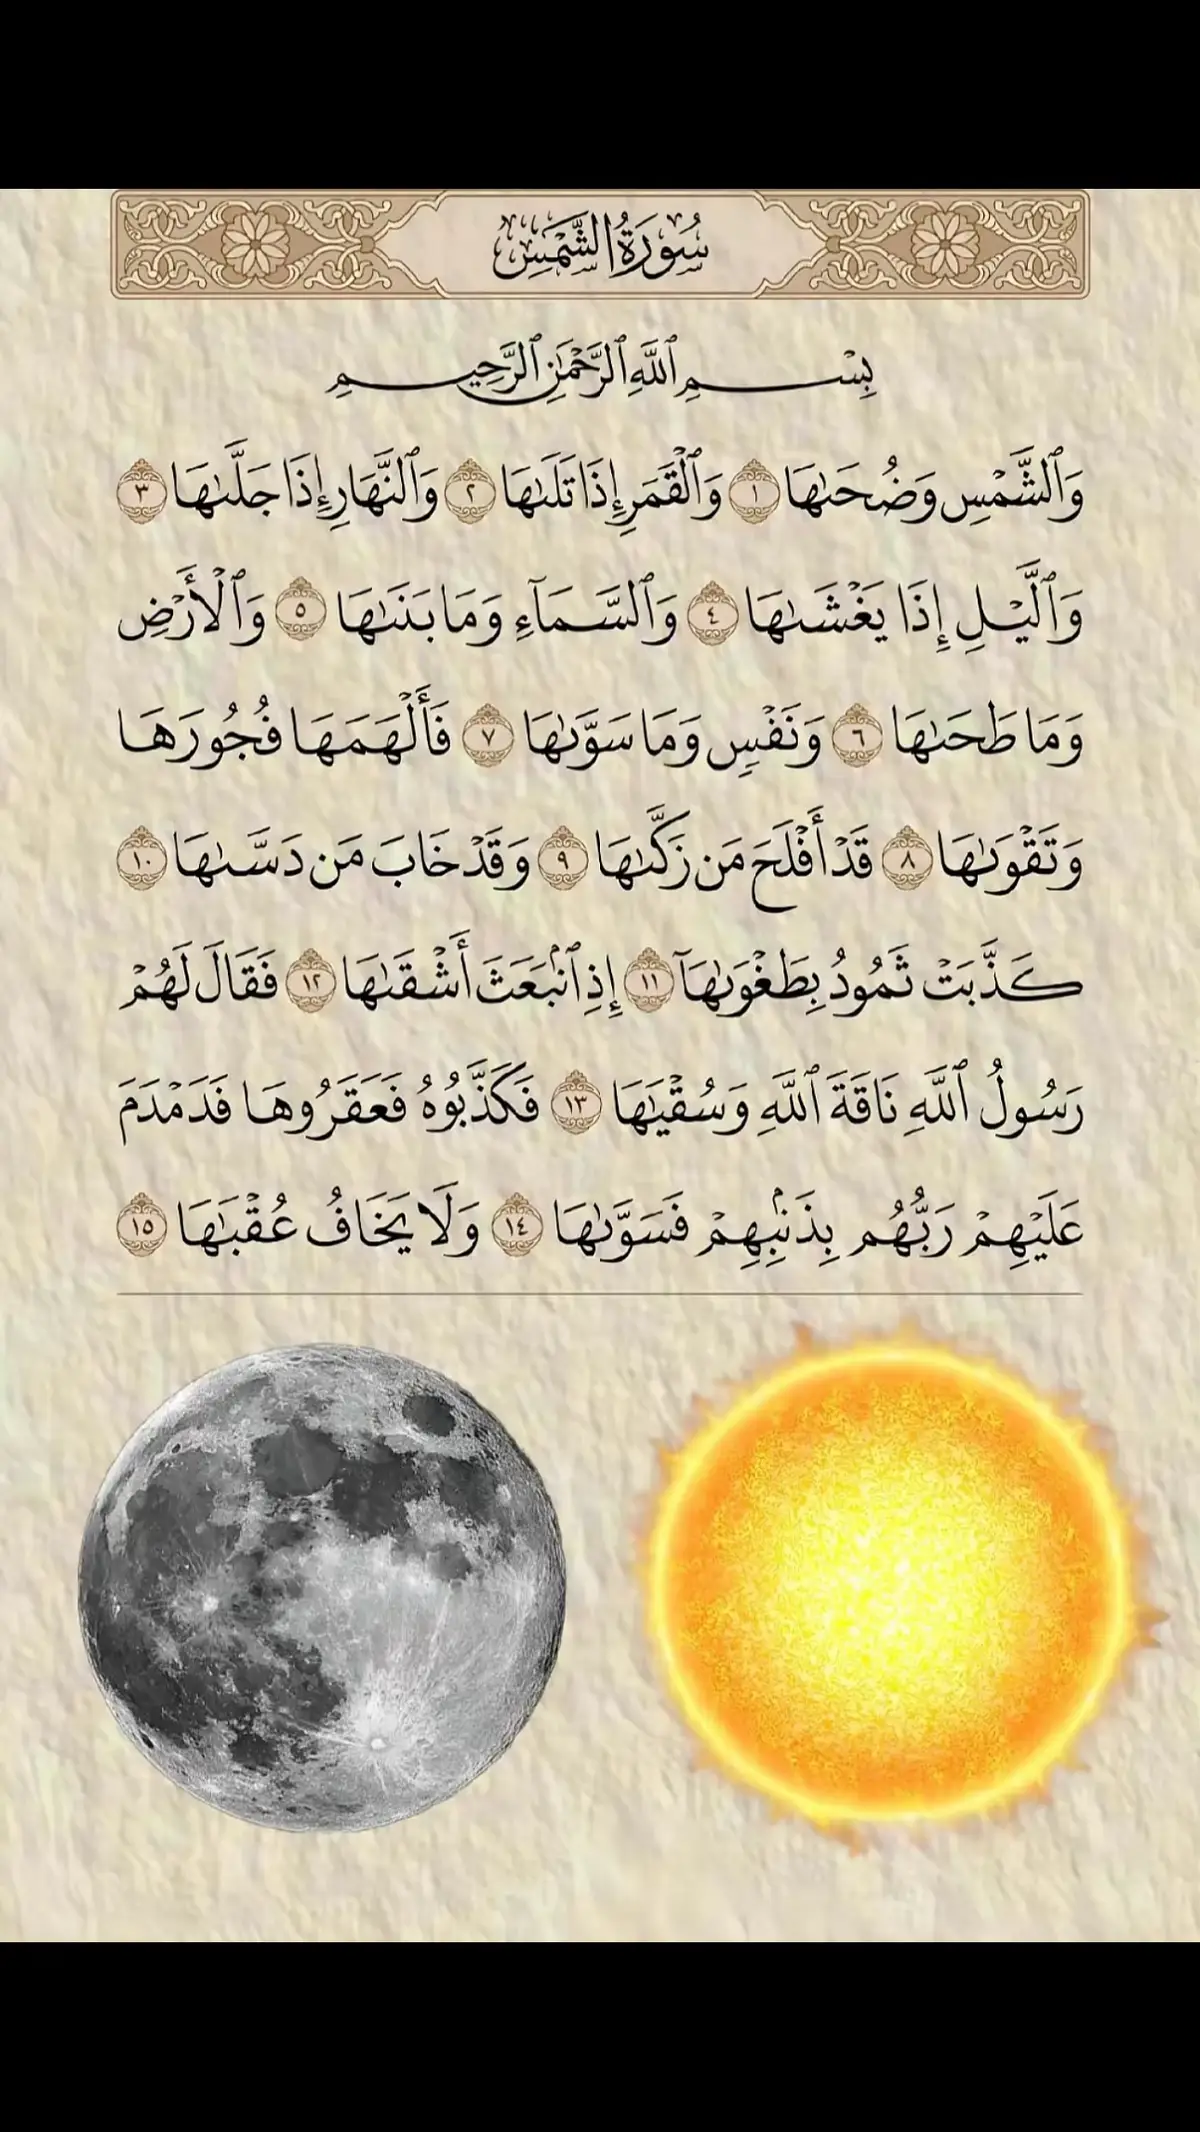 سُورَةُ الشَّمْسِ
بِسْمِ ٱللَّهِ ٱلرَّحْمَٰنِ ٱلرَّحِيمِ
وَٱلشَّمْسِ وَضُحَىٰهَا ١ وَٱلْقَمَرِ إِذَا تَلَىٰهَا ٢ وَٱلنَّهَارِ إِذَا جَلَّىٰهَا ٣
وَٱلَّيْلِ إِذَا يَغْشَىٰهَا ٤ وَٱلسَّمَآءِ وَمَا بَنَىٰهَا ٥ وَٱلْأَرْضِ
وَمَا طَحَىٰهَا ٦ وَنَفْسٍ وَمَا سَوَّىٰهَا ٧ فَأَلْهَمَهَا فُجُورَهَا
وَتَقْوَىٰهَا ٨ قَدْ أَفْلَحَ مَن زَكَّىٰهَا ٩ وَقَدْ خَابَ مَن دَسَّىٰهَا ١٠
كَذَّبَتْ ثَمُودُ بِطَغْوَىٰهَآ ١١ إِذِ ٱنۢبَعَثَ أَشْقَىٰهَا ١٢ فَقَالَ لَهُمْ
رَسُولُ ٱللَّهِ نَاقَةَ ٱللَّهِ وَسُقْيَٰهَا ١٣ فَكَذَّبُوهُ فَعَقَرُوهَا فَدَمْدَمَ
عَلَيْهِمْ رَبُّهُم بِذَنۢبِهِمْ فَسَوَّىٰهَا ١٤ وَلَا يَخَافُ عُقْبَٰهَا ١٥